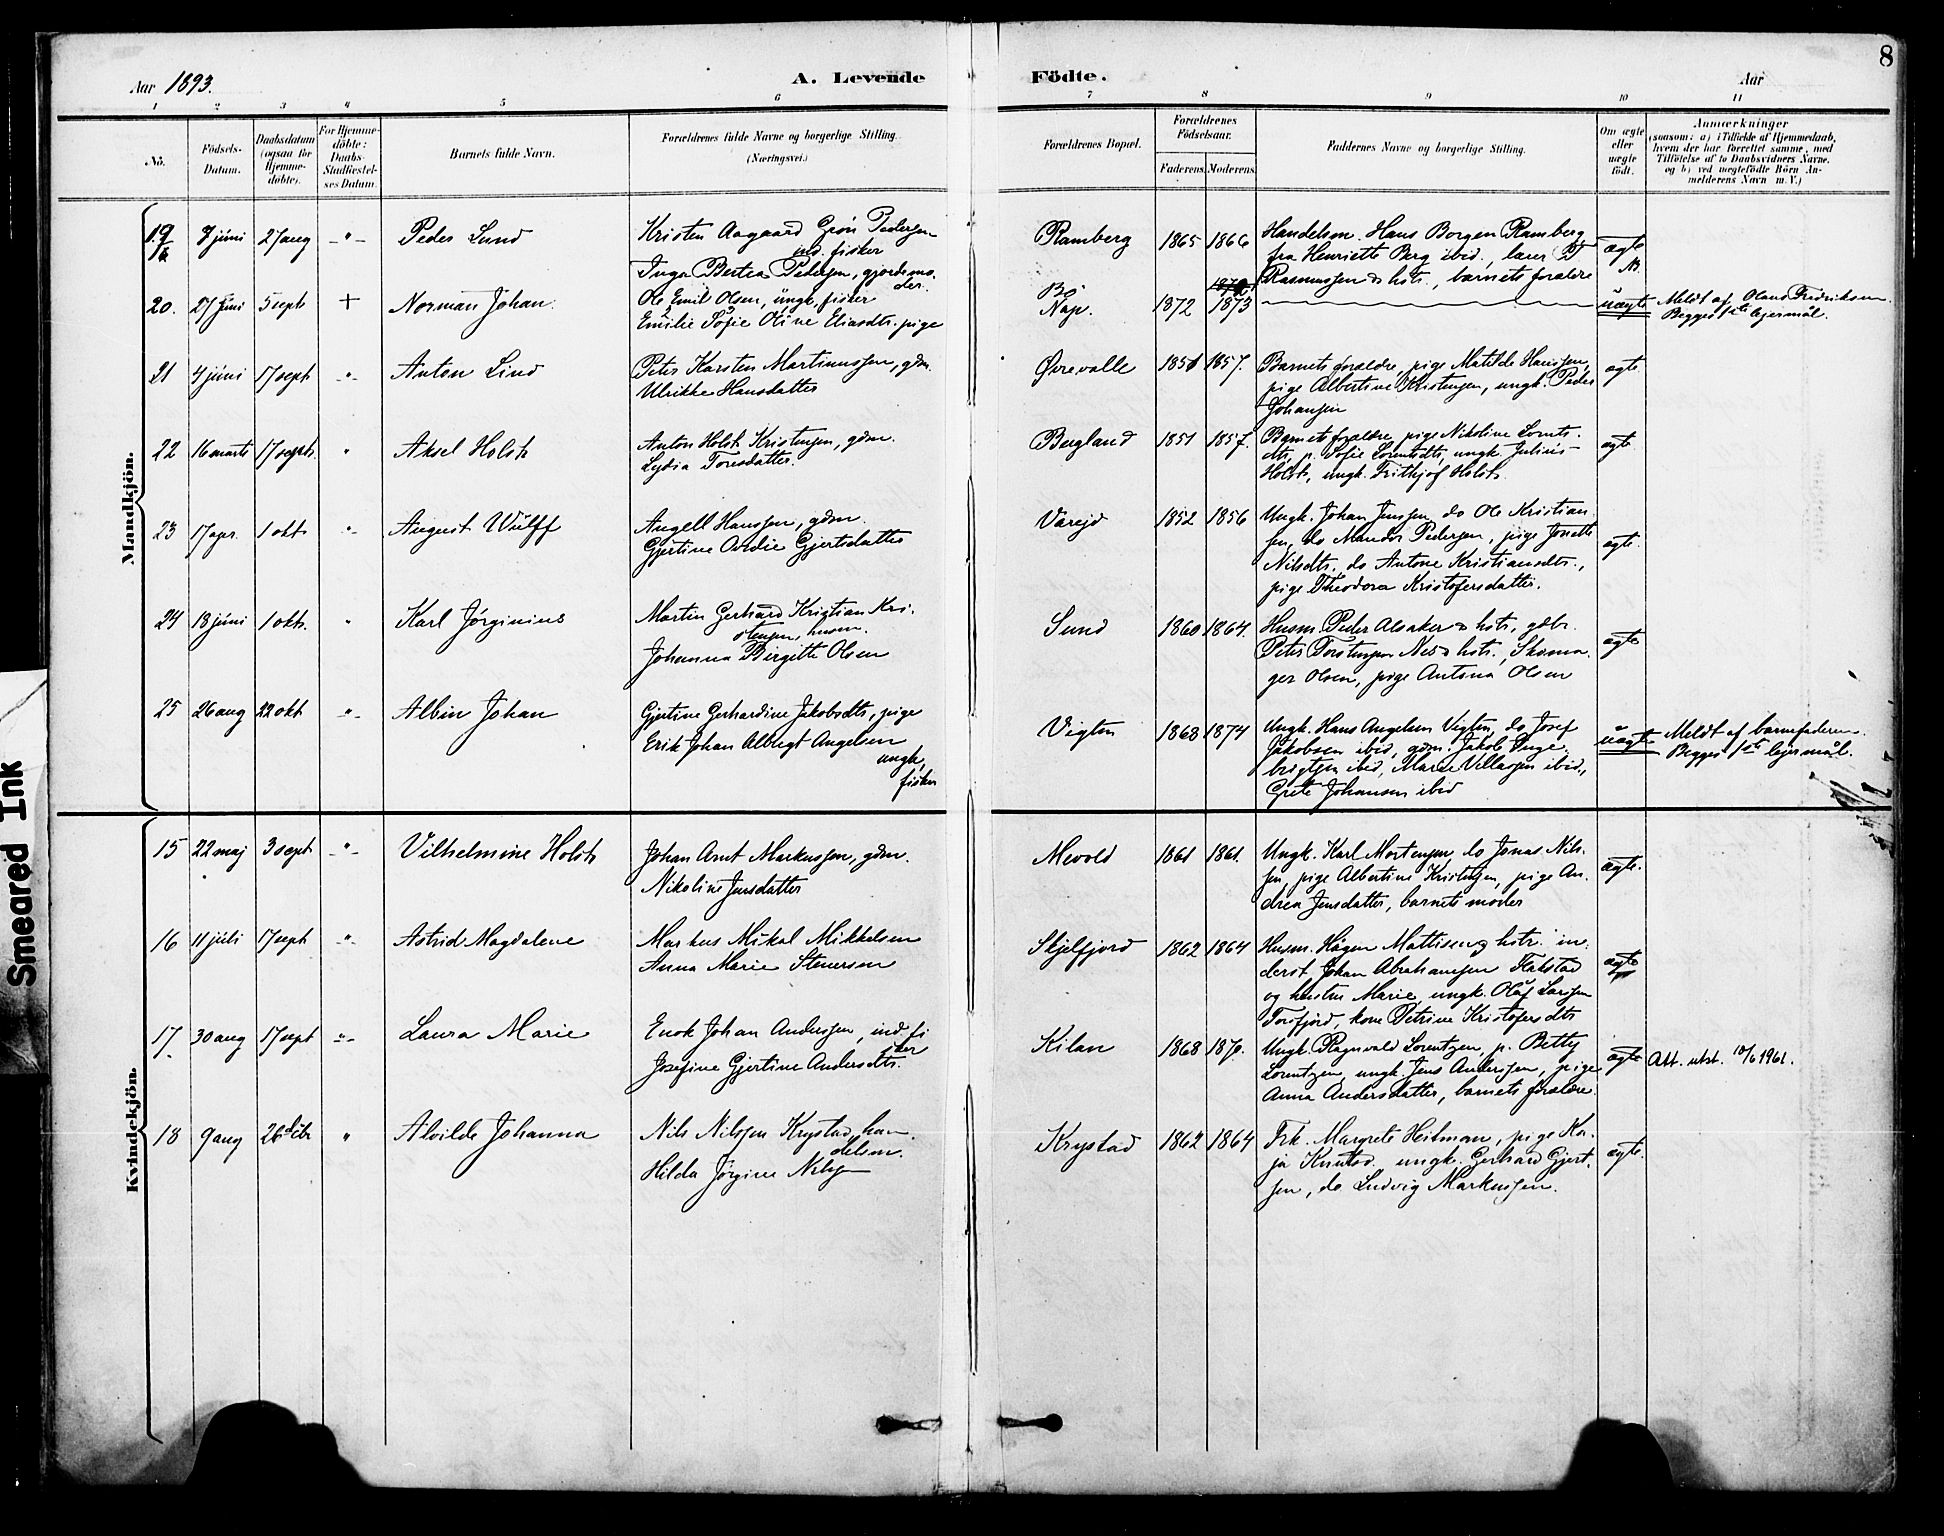 8
Aar 1893.
A. Levende Födte.
Aar
1 2 3 4 5 6 7 8 9 10 11
Nö.
Födsels-Datum.
Daabsdatum (ogsaa for Hjemmedöbte).
For Hjemmedöbte: Daabs-Stadfæstelses Datum.
Barnets fulde Navn.
Forældrenes fulde Navne og borgerlige Stilling. (Næringsvei.)
Forældrenes Bopæl.
Forældrenes Födselsaar.
Faderens Moderens
Faddernes Navne og borgerlige Stilling.
Om ægte eller uægte födt.
Anmærkninger
(saasom: a) i Tilfælde af Hjemmedaab, hvem der har forrettet samme, med Tilföielse af to Daabsvidners Navne, og b) ved uægtefödte Börn Anmelderens Navn m. V.)
Mandkjön.
19 7 juni 27 aug -"- Peder Lund
Kristen Aagaard Grön Pedersen
ind. fisker
Inga Bertea Pedersen, gjordemoder.
Ramberg 1865 1866
Handelsm. Hans Borgen Ramberg
frk Henriette Berg ibid., lærer
Rasmussen & hstr., barnets forældre
ægte
20. 27 juni 5 sept + Norman Johan.
Ole Emil Olsen, ungk. fisker
Emilie Sofie Oline Eliasdtr. pige
Bö
Nap. 1872 1873
uægte
Meldt af Olaus Fredriksen.
Begges 1ste lejermål.
21 4 juni 17 sept -"- Anton Lind
Peter Karsten Martinussen, gdm.
Ulrikke Hansdatter
Ørevalle 1851 1857.
Barnets forældre, pige Matilde Hanssen,
pige Albertine Kristensen, ungk. Peder
Johansen
ægte.
22 16 marts 17 sept. " Aksel Holst
Anton Holst Kristensen, gdm.
Lydia Toresdatter.
Bergland 1851 1857.
Barnets forældre, pige Nikoline Lornts.
dtr, p. Sofie Lorentsdtr, ungk. Julius
Holst, ungk. Fritkjof Holst.
ægte.
23 17 apr. 1 okt. -"- August Wulff
Angell Hanssen, gdm.
Gjertine Ovidie Gjertsdatter
Varejd 1852 1856
Ungk. Johan Jenssen, do Ole Kristian
sen, do Mandor Pedersen, pige Jonette
Nilsdtr., do Antone Kristiansdtr.,
pige Theodora Kristofersdatter.
ægte.
24 18 juni 1 okt. " Karl Jørginius
Martin Gerhard Kristian Kri-
stensen, husm.
Johanna Birgitte Olsen
Sund 1860 1864.
Husm. Peder Alsaker & hstr., gdbr.
Peter Torstensen Nes & hstr., Skoma
ger Olsen, pige Antona Olsen
ægte
25 26 aug 22 okt -"- Albin Johan
Gjertine Gerhardine Jakobsdtr, pige
Erik Johan Albrigt Angelsen
ungk,
fisker
Vigten 1868 1874
Ungk. Hans Angelsen Vigten, do Josef
Jakobsen ibid, gdm. Jakob Inge
brigtsen ibid, Marie Villassen ibid,
Grete Johansen ibid
uægte
Meldt af barnefaderen.
Begges 1ste lejermål.
Kvindekjön.
15 22 maj 3 sept -"- Vilhelmine Holst
Johan Arnt Markussen, gdm.
Nikoline Jensdatter
Mevold 1861 1861.
Ungk. Karl Mortensen, do Jonas Nils-
sen, pige Albertine Kristensen, pige An-
drea Jensdatter, barnets moder
ægte.
16 11 juli 17 sept -"- Astrid Magdalene
Markus Mikal Mikkelsen
Anna Marie Stenersen
Skjelfjord 1862 1864
Husm. Hågen Mattisen & hstr. in-
derst Johan Abrahamsen Flakstad
og hustru Marie, ungk. Oluf Larssen
Torsfjord, kone Petrine Kristofersdtr
ægte
17 30 aug 17 sept -"- Laura Marie
Enok Johan Anderssen, ind. fi
sker
Josefine Gjertine Andersdtr.
Kilan 1868 1870.
Ungk. Ragnvald Lorentzen, p. Betty
Lorentzen, ungk. Jens Anderssen, pige
Anna Andersdatter, barnets forældre
ægte
Att. utst. 10/6 1961.
18 9 aug 26 debr " Alvilde Johanna
Nils Nilssen Krystad, han
delsm.
Hilda Jørgine Nilss
Krystad 1862 1864
Frk. Margrete Heitman, pige Ka-
ja Knutsd. ungk. Gerhard Gjert-
sen, do Ludvig Markussen.
ægte.
Smeared Ink